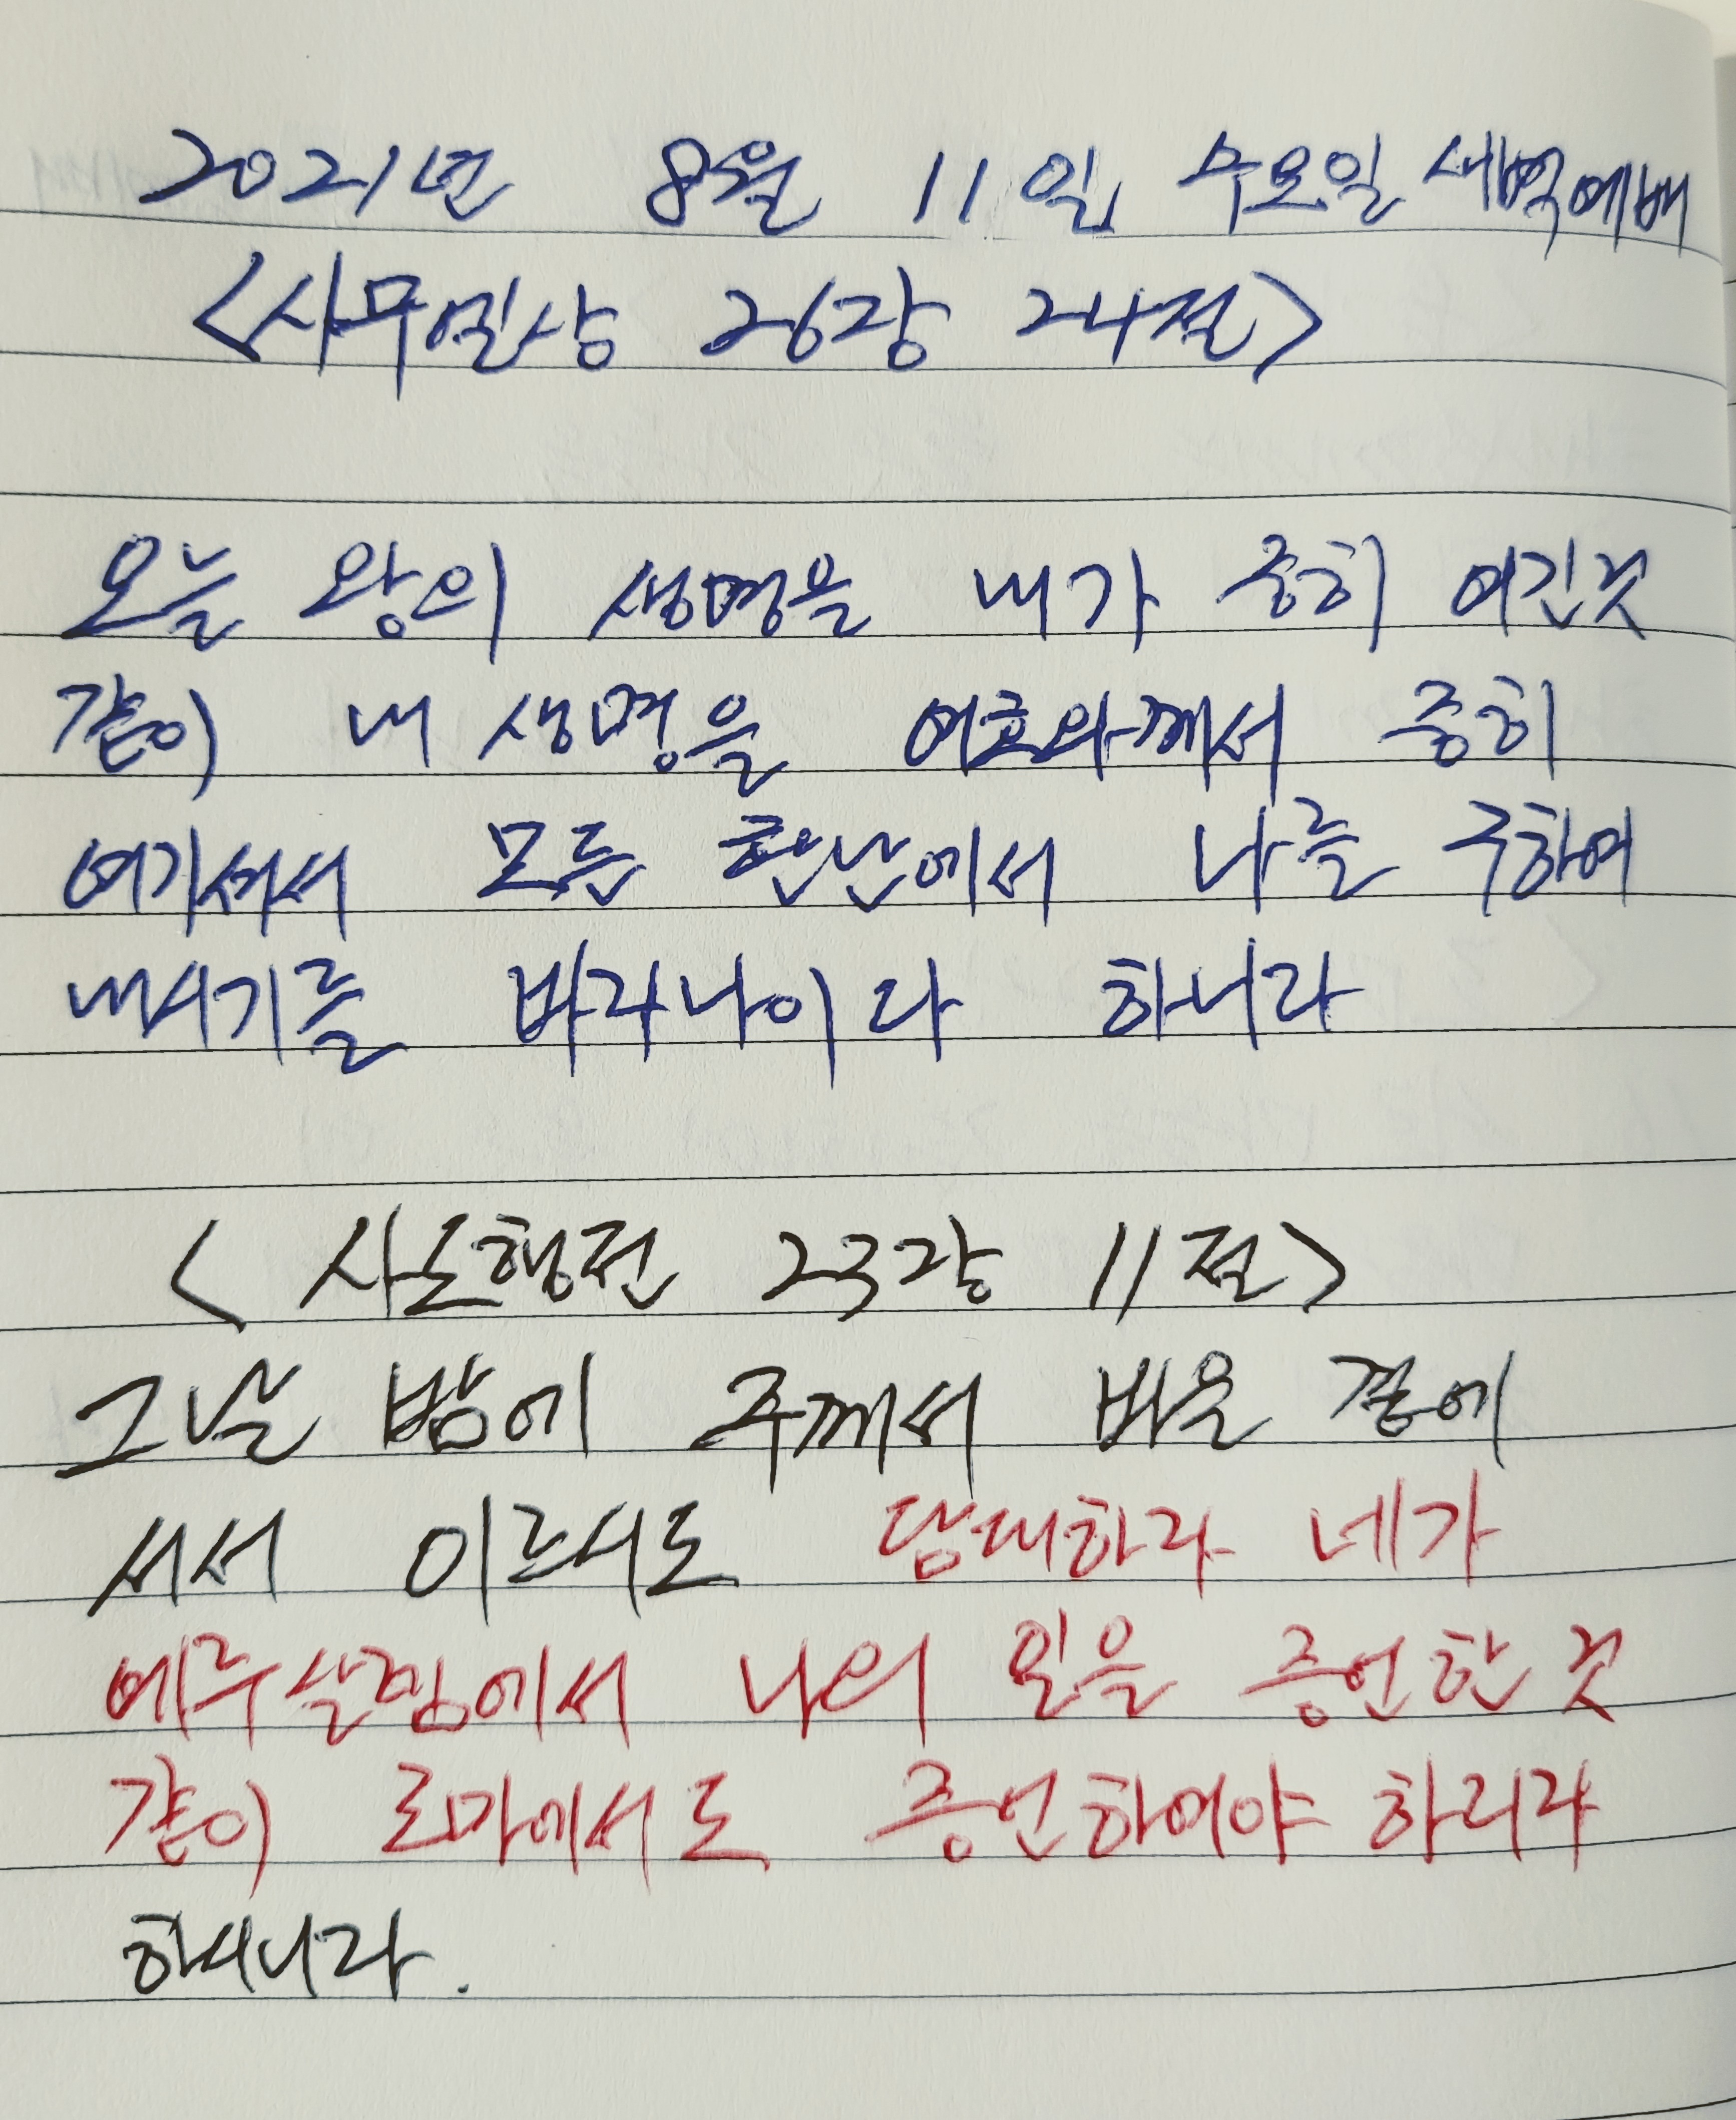 2021년 8월 11일 수요일 새벽예배
<사무엘상 26장 24절>
오늘 왕의 생명을 내가 중히 여긴것
같이 내 생명을 여호와께서 중히
여기셔서 모든 환난에서 나를 구하여
내시기를 바라나이다 하니라
< 사도행전 23장 11절>
그날 밤에 주께서 바울 곁에
서서 이르시되 담대하라 네가
예루살렘에서 나의 일을 증언한 것
같이 로마에서도 증언하여야 하리라
하시니라.